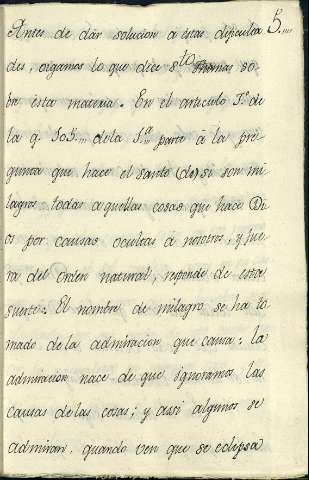 5....
Antes de dár solucion á éstas dificulta
des, oigamos lo que dice Sto Thomas so
bre ésta materia. En el articulo 7º de
la q. 105... de la 1ª parte á la pre
gunta que hace el santo (de) si son mi
lagros todas aquellas cosas que hace Di
os por causas ocultas á nosotros, y fue
ra del orden natural, responde de esta
suerte: El nombre de milagro se ha to
mado de la admiracion que causa: la
admiracion nace de que ignoramos las
causas de las cosas; y assi algunos se
admiran, quando ven que se eclipsa